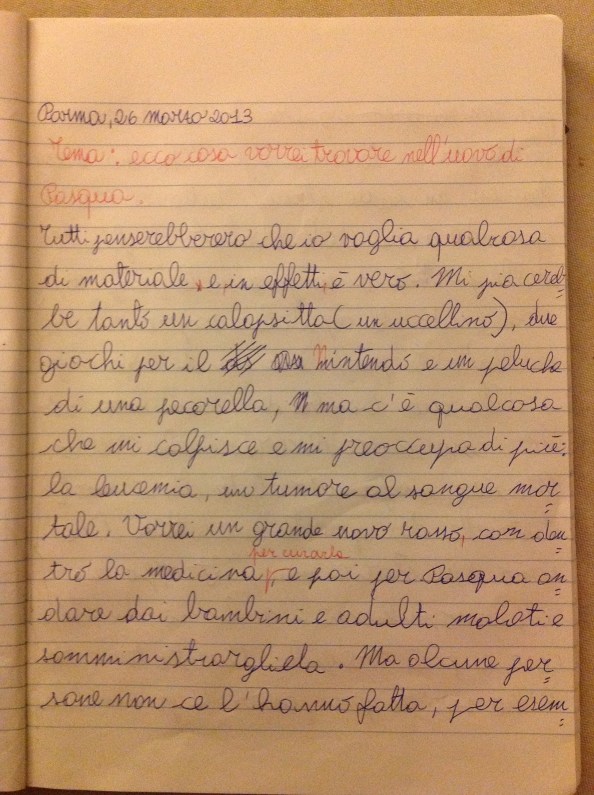 Parma, 26 marzo 2013
Tema: ecco cosa vorrei trovare nell'uovo di
Pasqua.
Tutti penserebberero che io voglia qualcosa
di materiale, e, in effetti, è vero. Mi piacereb=
be tanto un calopsitta (un uccellino), due
giochi per il Nintendo e un peluche
di una pecorella, ma c'è qualcosa
che mi colpisce e mi preoccupa di più:
la leucemia, un tumore al sangue mor=
tale. Vorrei un grande uovo rosso, con den=
per curarla
tro la medicina e poi per Pasqua an=
dare dai bambini e adulti malati e
somministrargliela. Ma alcune per=
sone non ce l'hanno fatta, per esem=